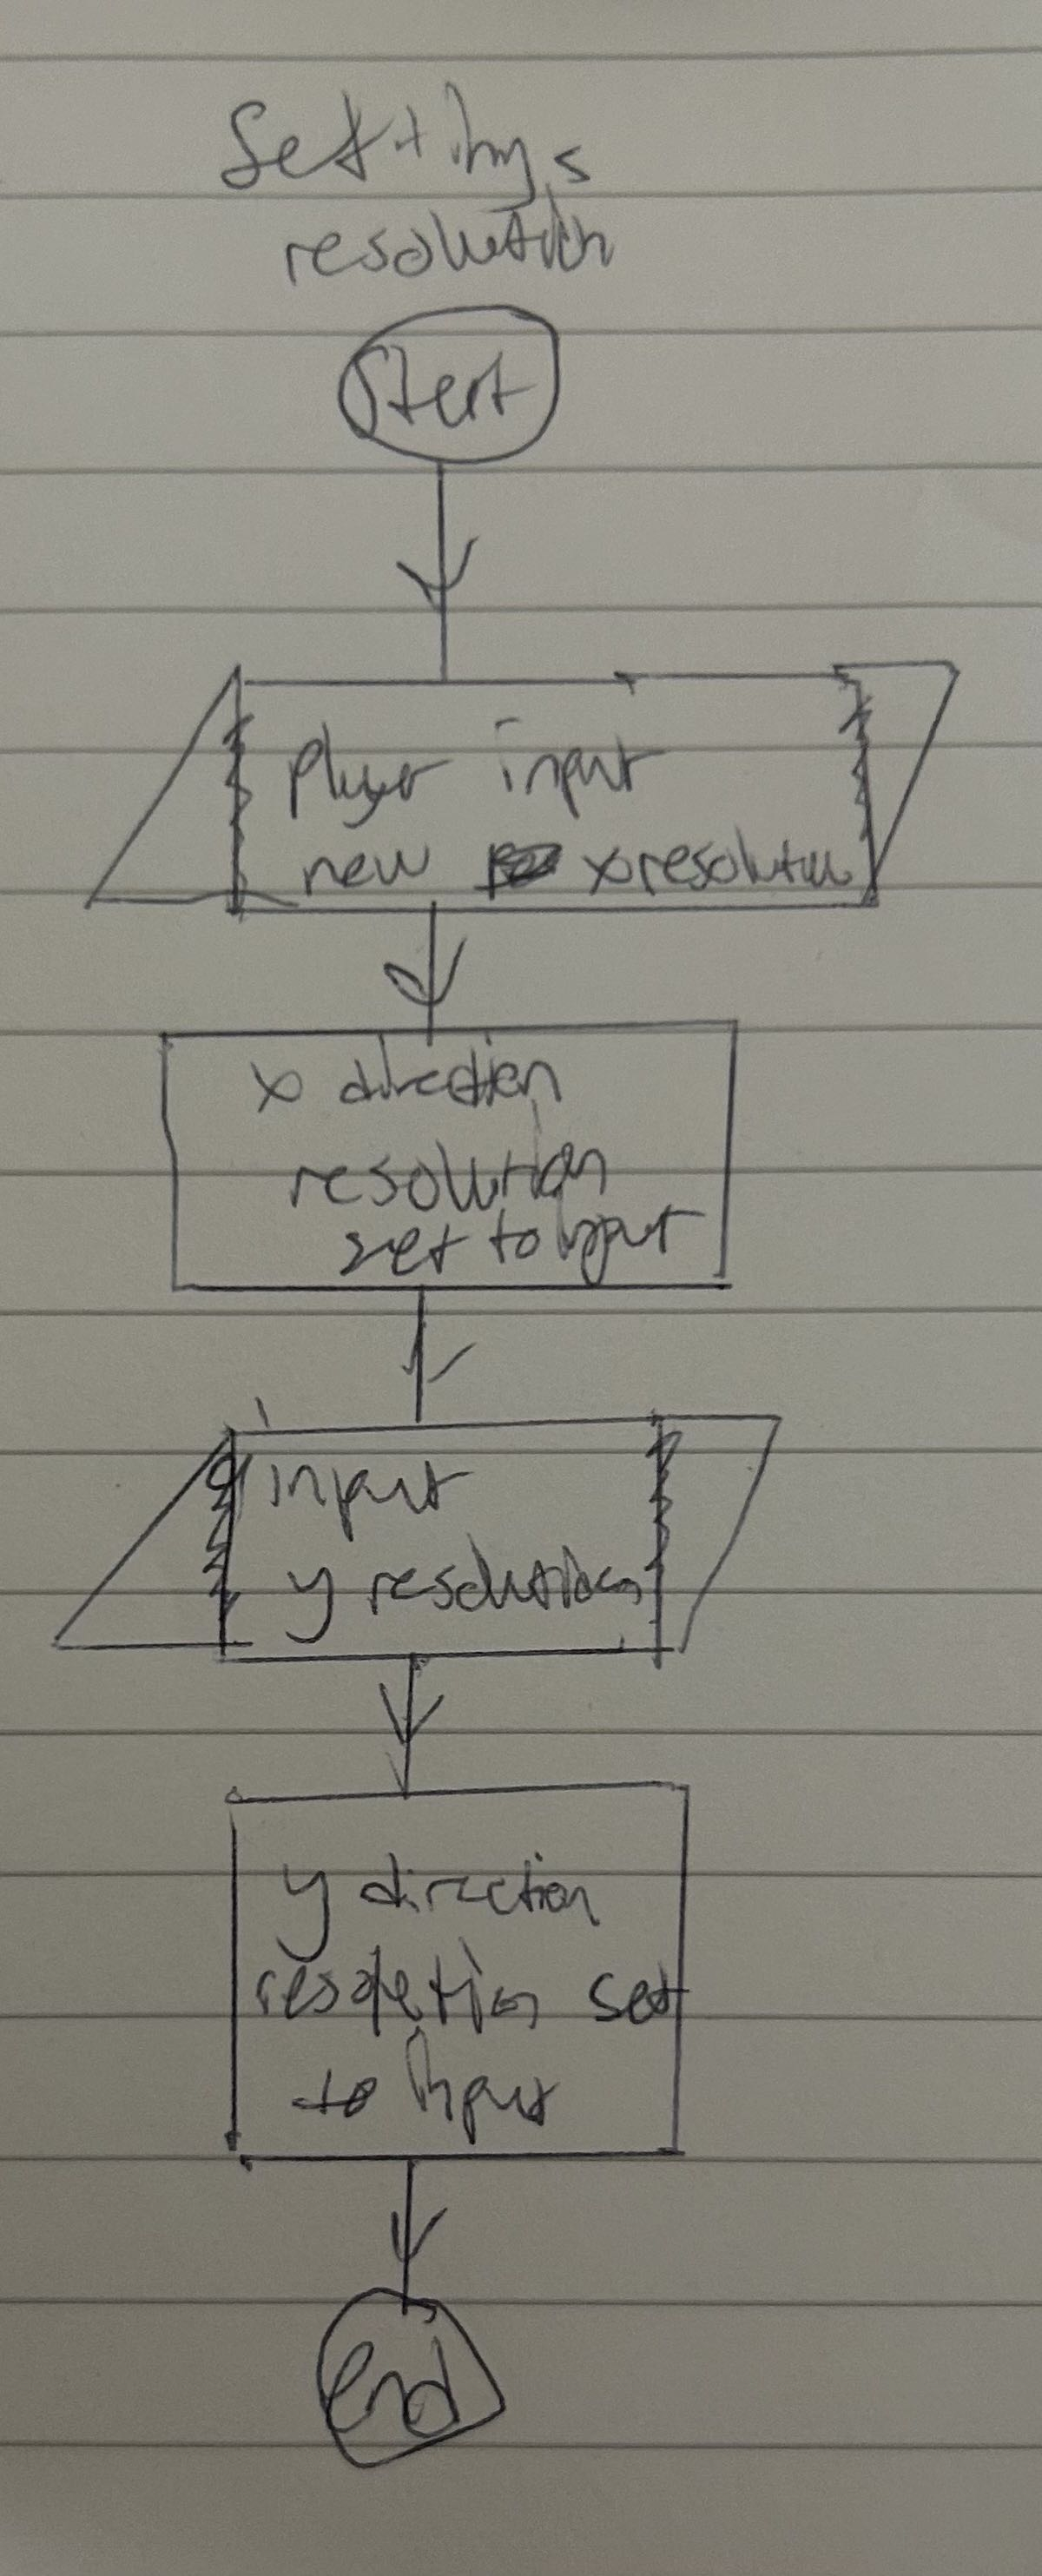 Settings
resolution
Start
player input
new x resolution
x direction
resolution
set to input
input
y resolution
y direction
resolution set
to input
end